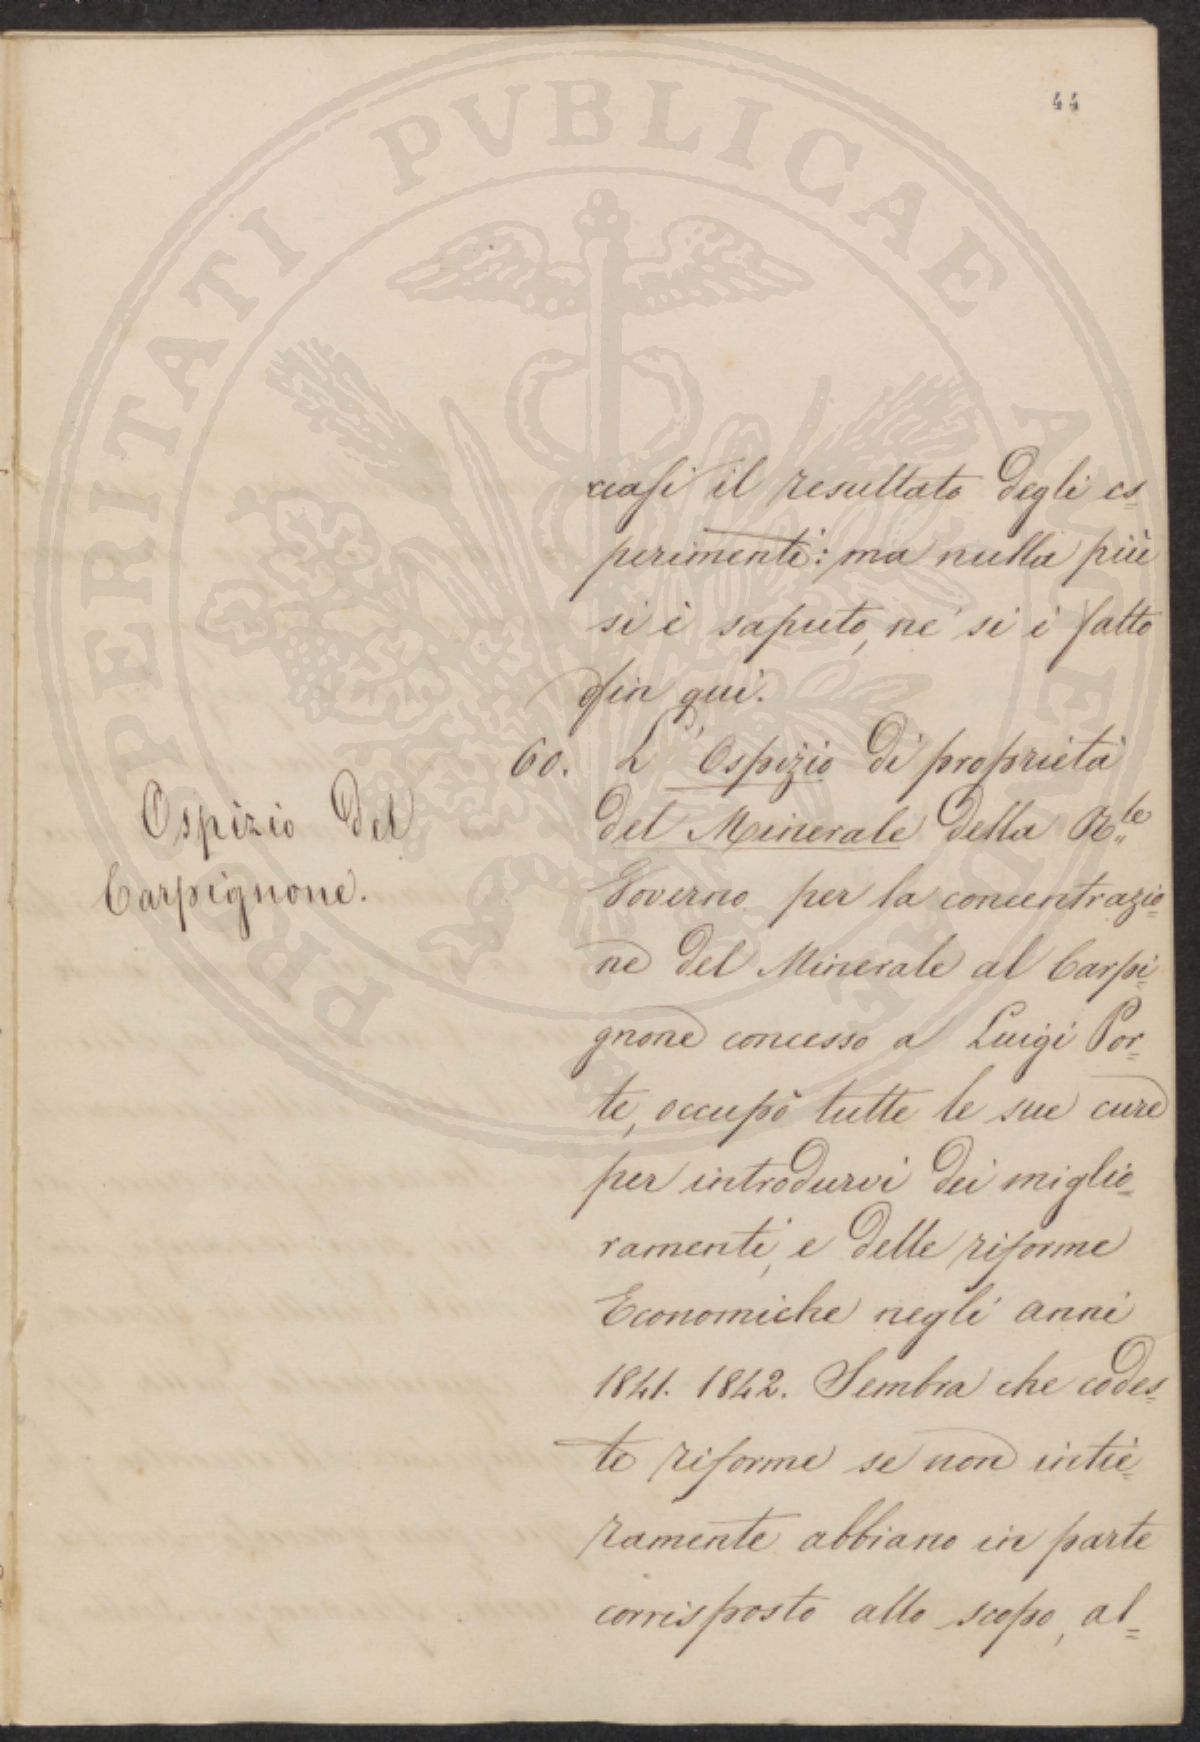 44
PROSPERITATI PVBLICAE AVGENDAE
il resultato degli es=
perimenti: ma nulla più
si è saputo, nè si è fatto
fin qui.
Ospizio del
Carpignone.
60. L'Ospizio di proprietà
del Minerale della R.le
Governo per la concentrazio=
ne del Minerale al Carpi=
gnone concesso a Luigi Por=
te, occupò tutte le sue cure
per introdurvi dei miglio=
ramenti, e delle riforme
Economiche negli anni
1841. 1842. Sembra che codes=
te riforme se non intie=
ramente abbiano in parte
corrisposto allo scopo, al=